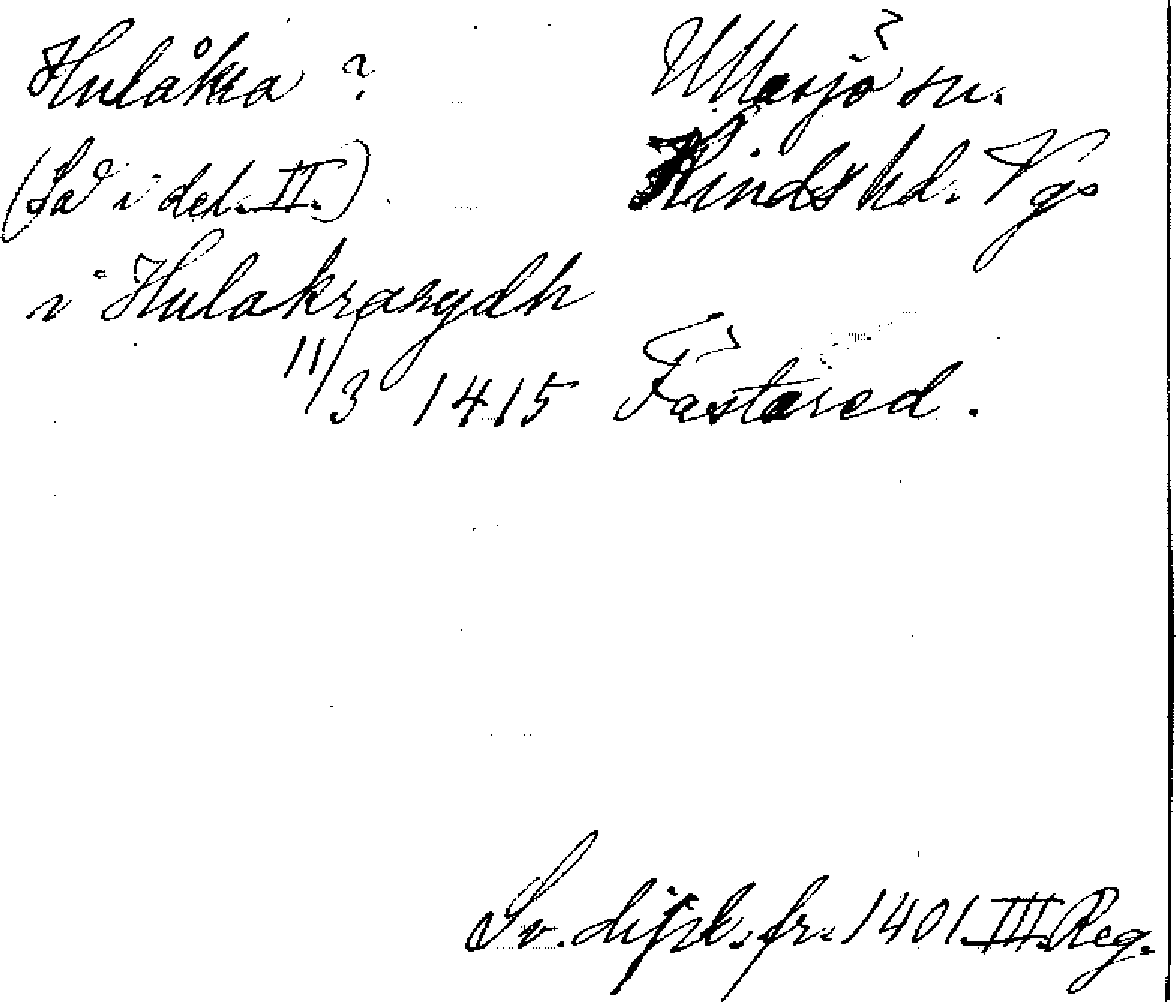 Hulåkra ? Ullasjö sn. ?
(Så i del. II.) Kinds hd. Vgs
i Hulakrarydh
11/3 1415 Fastared.
Sv. dipl. fr. 1401. III. Reg.